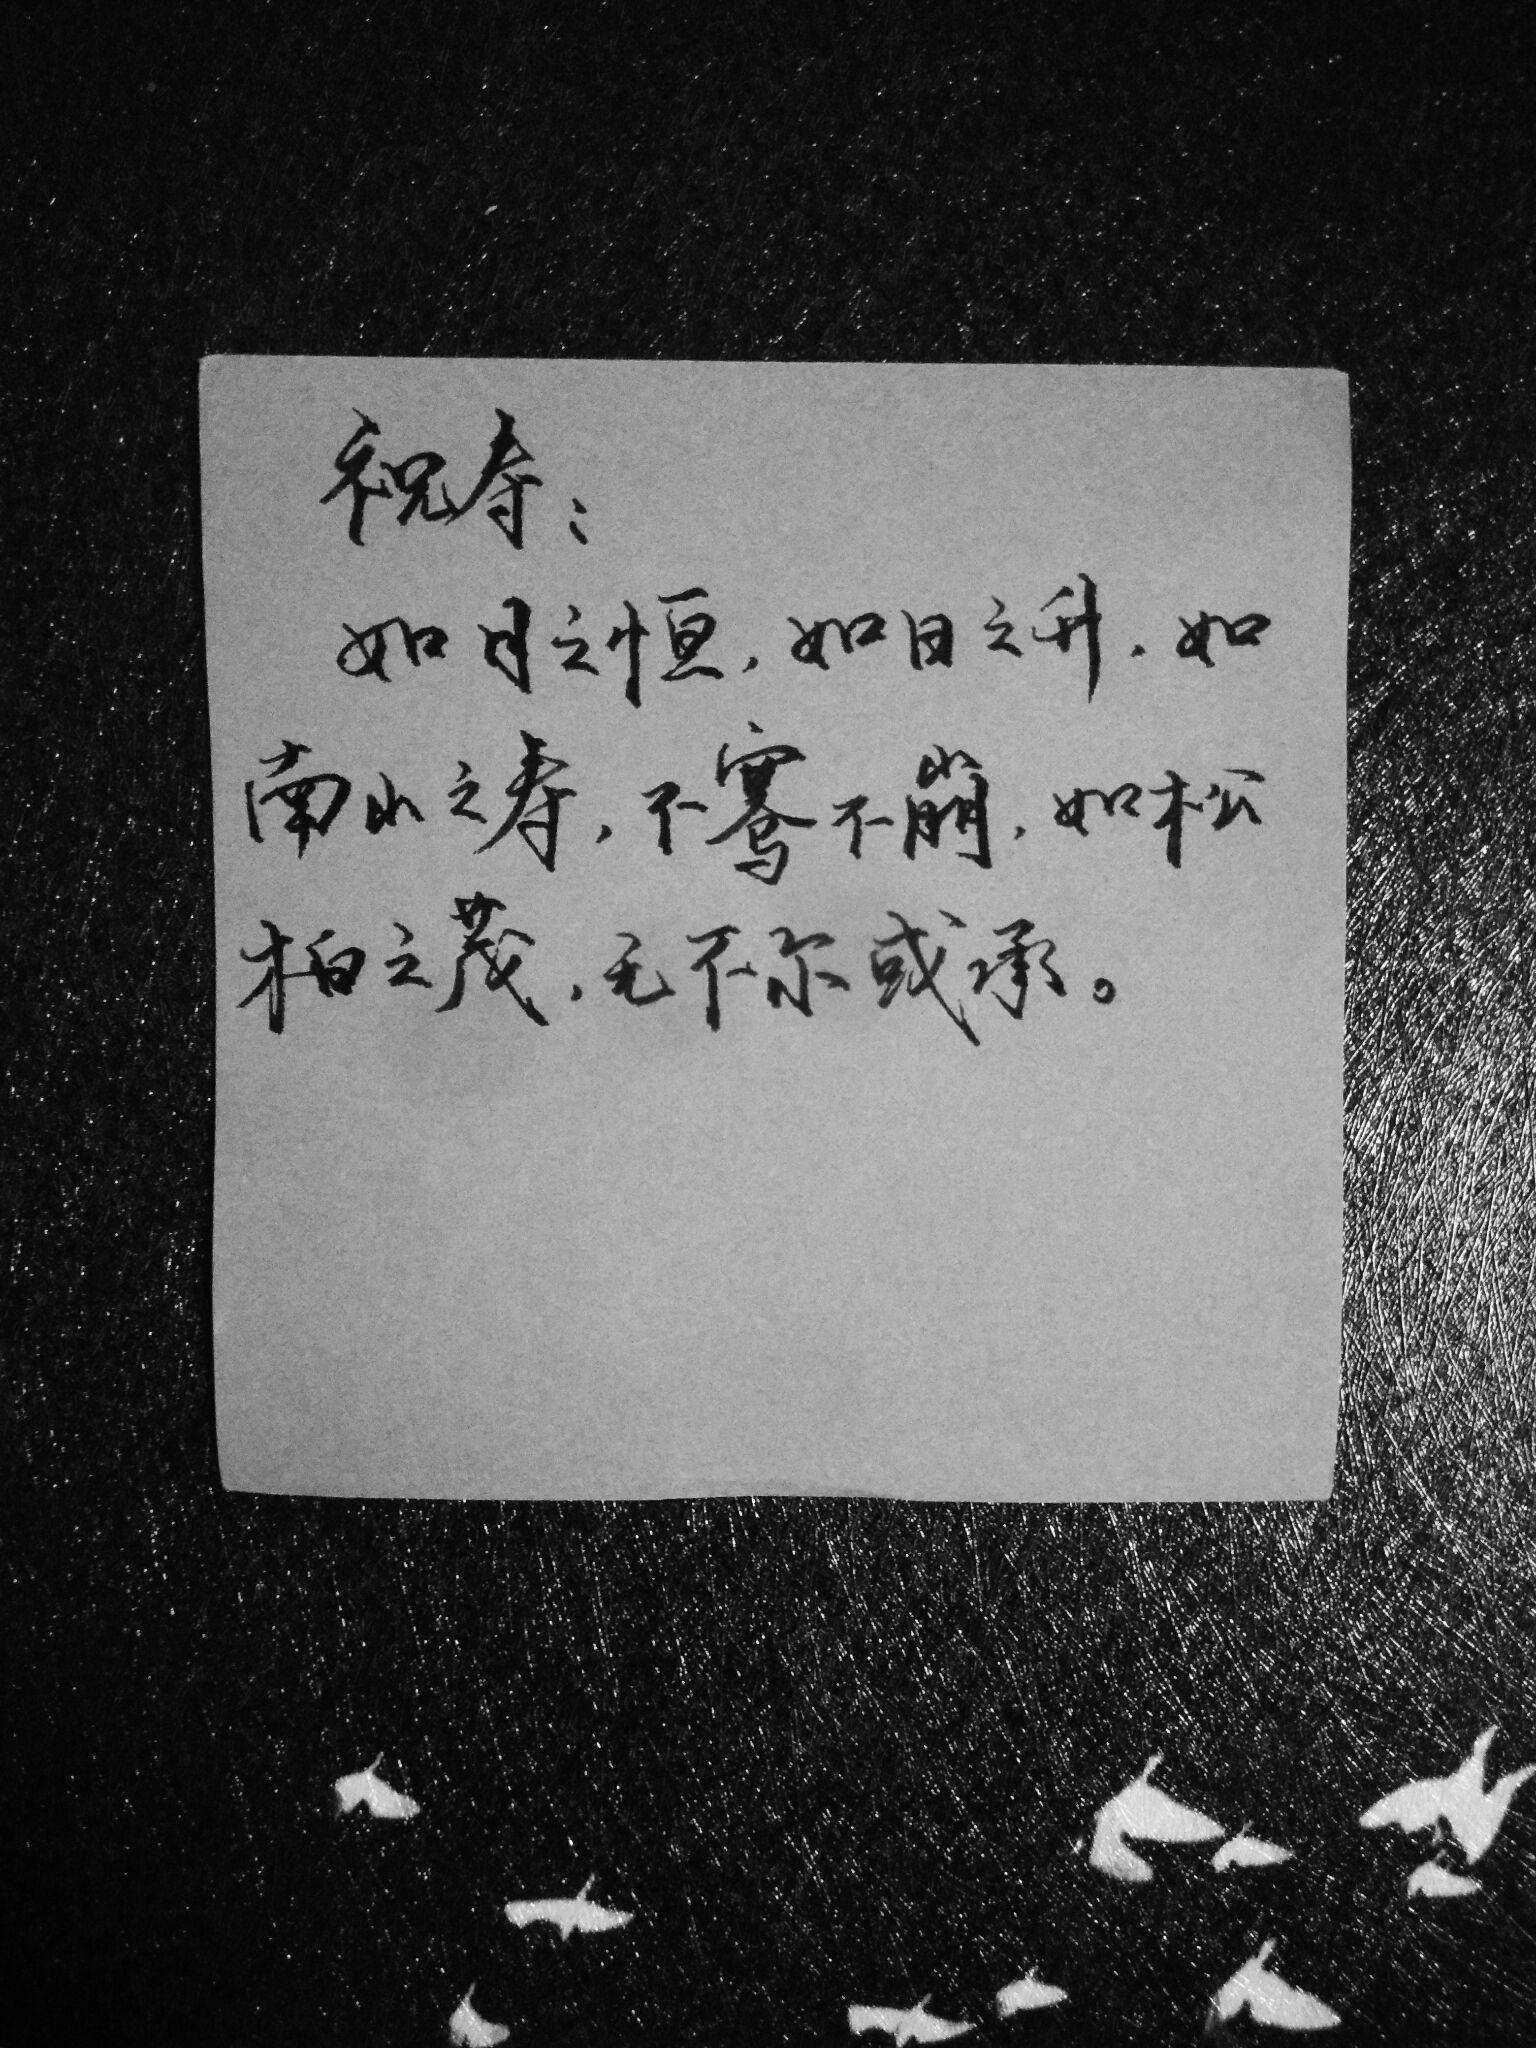 祝寿：
如月之恒，如日之升，如
南山之寿，不骞不崩，如松
柏之茂，无不尔或承。